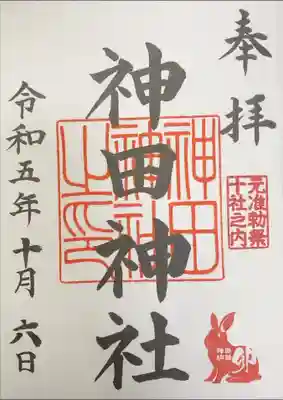 奉拝
神田神社
神田
神社
之印
元准勅祭
十社之内
卯
令和五年十月六日